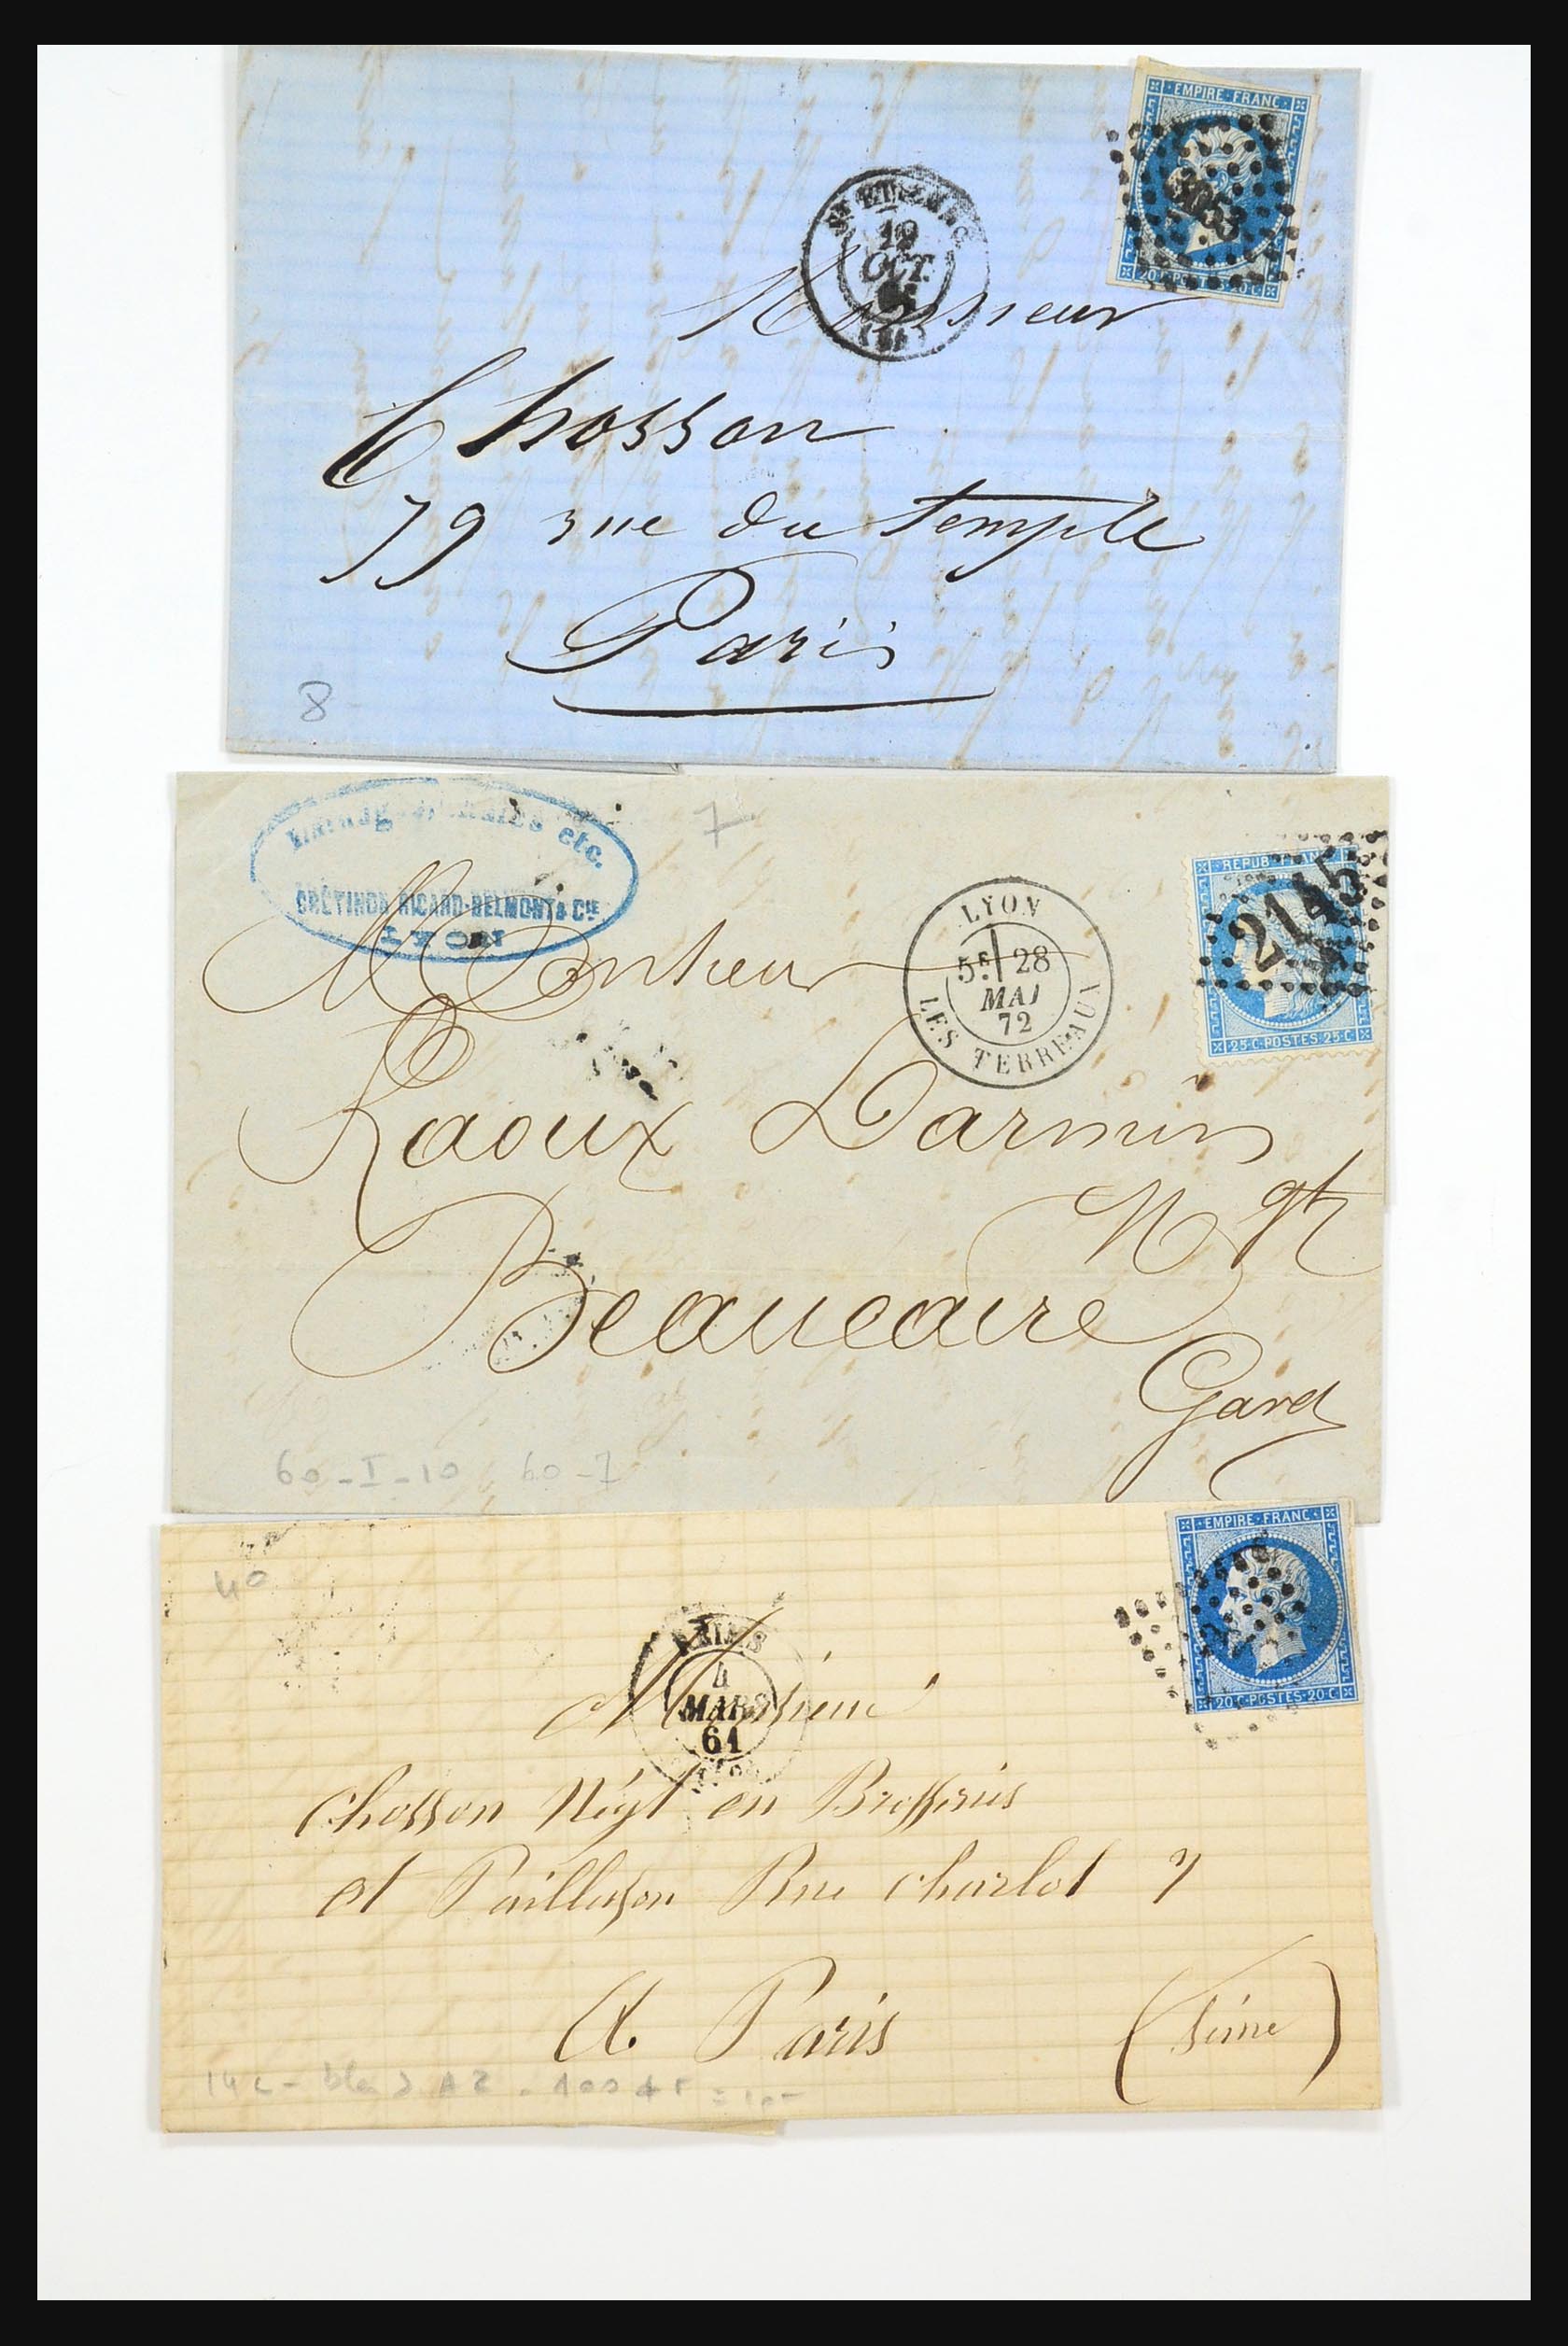 EMPIRE FRANC
20 C POSTES 20 C
19
OCT.
Monsieur
Chosson
79 rue du temple
Paris
8
7
etc.
CRÉTINON RICARD-BELMONT & CIE
LYON
REPUB FRANC
2145
25 C POSTES 25 C
LYON
5E 28
MAI
72
LES TERREAUX
Monsieur
Raoux Darmin
Ngt
Beaucaire
Gard
60-I-10 60-1
EMPIRE FRANC
20 C POSTES 20 C
40
REIMS
4
MARS
61
Monsieur
Chosson Négt en Brosseries
et Paillasson Rue Charlot 7
A Paris (Seine)